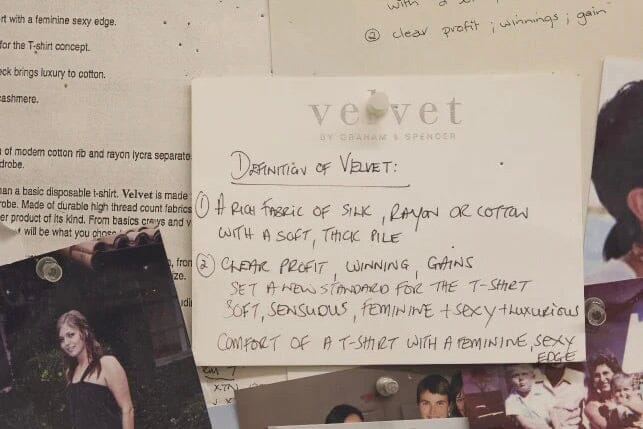 rt with a feminine sexy edge.
for the T-shirt concept.
eck brings luxury to cotton.
cashmere.
n of modern cotton rib and rayon lycra separate
drobe.
han a basic disposable t-shirt. Velvet is made
robe. Made of durable high thread count fabrics
er product of its kind. From basics crews and v
will be what you choos
, from
ze.
with a
② clear profit ; winnings ; gain
velvet
BY GRAHAM & SPENCER
DEFINITION OF VELVET:
① A RICH FABRIC OF SILK, RAYON OR COTTON
WITH A SOFT, THICK PILE
② CLEAR PROFIT, WINNING, GAINS
SET A NEW STANDARD FOR THE T-SHIRT
SOFT, SENSUOUS, FEMININE + SEXY + LUXURIOUS
COMFORT OF A T-SHIRT WITH A FEMININE, SEXY
EDGE